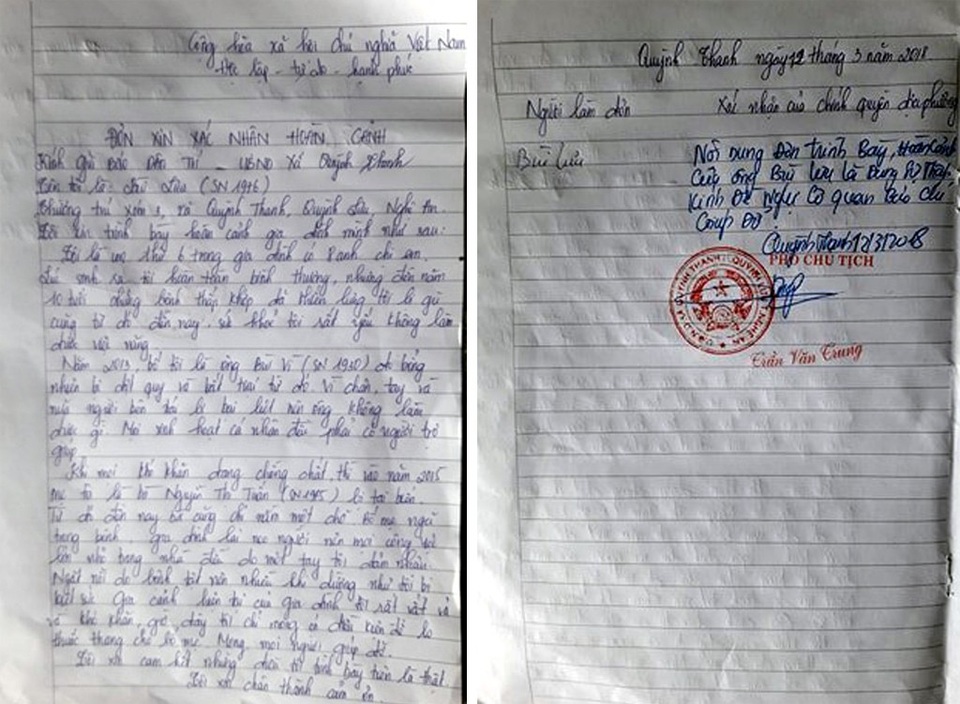 Cộng hòa xã hội chủ nghĩa Việt Nam
Độc lập - tự do - hạnh phúc
ĐƠN XIN XÁC NHẬN HOÀN CẢNH
Kính gửi BÁO DÂN TRÍ - UBND Xã Quỳnh Thanh
Tên tôi là: Bùi Lưu (SN 1976)
Thường trú xóm 3, xã Quỳnh Thanh, Quỳnh Lưu, Nghệ An.
Tôi xin trình bày hoàn cảnh gia đình mình như sau:
Tôi là con thứ 6 trong gia đình có 8 anh chị em.
Lúc sinh ra tôi hoàn toàn bình thường, nhưng đến năm
10 tuổi chứng bệnh thấp khớp đã khiến lưng tôi bị gù
cũng từ đó đến nay, sức khoẻ tôi rất yếu không làm
được việc nặng.
Năm 2013, bố tôi là ông Bùi Vĩ (SN 1930) đã bỗng
nhiên bị đột quỵ và bắt đầu từ đó vì chân, tay và
nửa người bên trái bị bại liệt nên ông không làm
được gì. Mọi sinh hoạt cá nhân đều phải có người trợ
giúp
Khi mọi khó khăn đang chồng chất, thì vào năm 2015
mẹ tôi là bà Nguyễn Thị Tuấn bị tai biến.
Từ đó đến nay bà cũng chỉ nằm một chỗ. Bố mẹ ngã
trọng bệnh, gia đình lại neo người nên mọi công việc
lớn nhỏ trong nhà đều do một tay tôi đảm nhận.
Ngặt nỗi do bệnh tật nên nhiều khi dường như tôi bị
kiệt sức. Gia cảnh hiện tại của gia đình tôi rất vất vả
và khó khăn, giờ đây tôi chỉ mong có điều kiện để lo
thuốc thang cho bố mẹ. Mong mọi người giúp đỡ.
Tôi xin cam kết những điều tôi trình bày trên là thật.
Tôi xin chân thành cảm ơn.
Quỳnh Thanh ngày 12 tháng 3 năm 2018
Người làm đơn Xác nhận của chính quyền địa phương
Bùi Lưu
Nội Dung Đơn Trình Bày, Hoàn Cảnh
Của ông Bùi Lưu là Đúng Sự Thật,
Kính Đề Nghị Cơ quan Báo Chí
Giúp Đỡ.
Quỳnh Thanh 12/3/2018
PHÓ CHỦ TỊCH
Trần Văn Trung